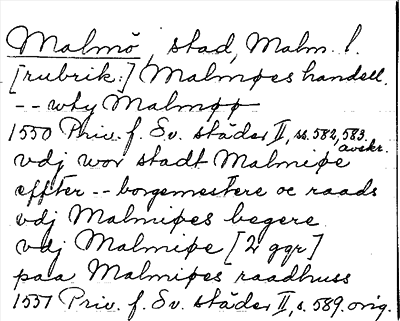 Malmö, stad, Malm. l.
[rubrik:] Malmøes handell.
-- wty Malmøø
1550 Priv. f. Sv. städer II, ss. 582, 583.
avskr.
vdj wor stadt Malmiøe
effter -- borgemestere oc raads
vdj Malmiøes begere
vdj Malmiøe [2 ggr]
paa Malmiøes raadhuss
1551 Priv. f. Sv. städer II, s. 589. orig.